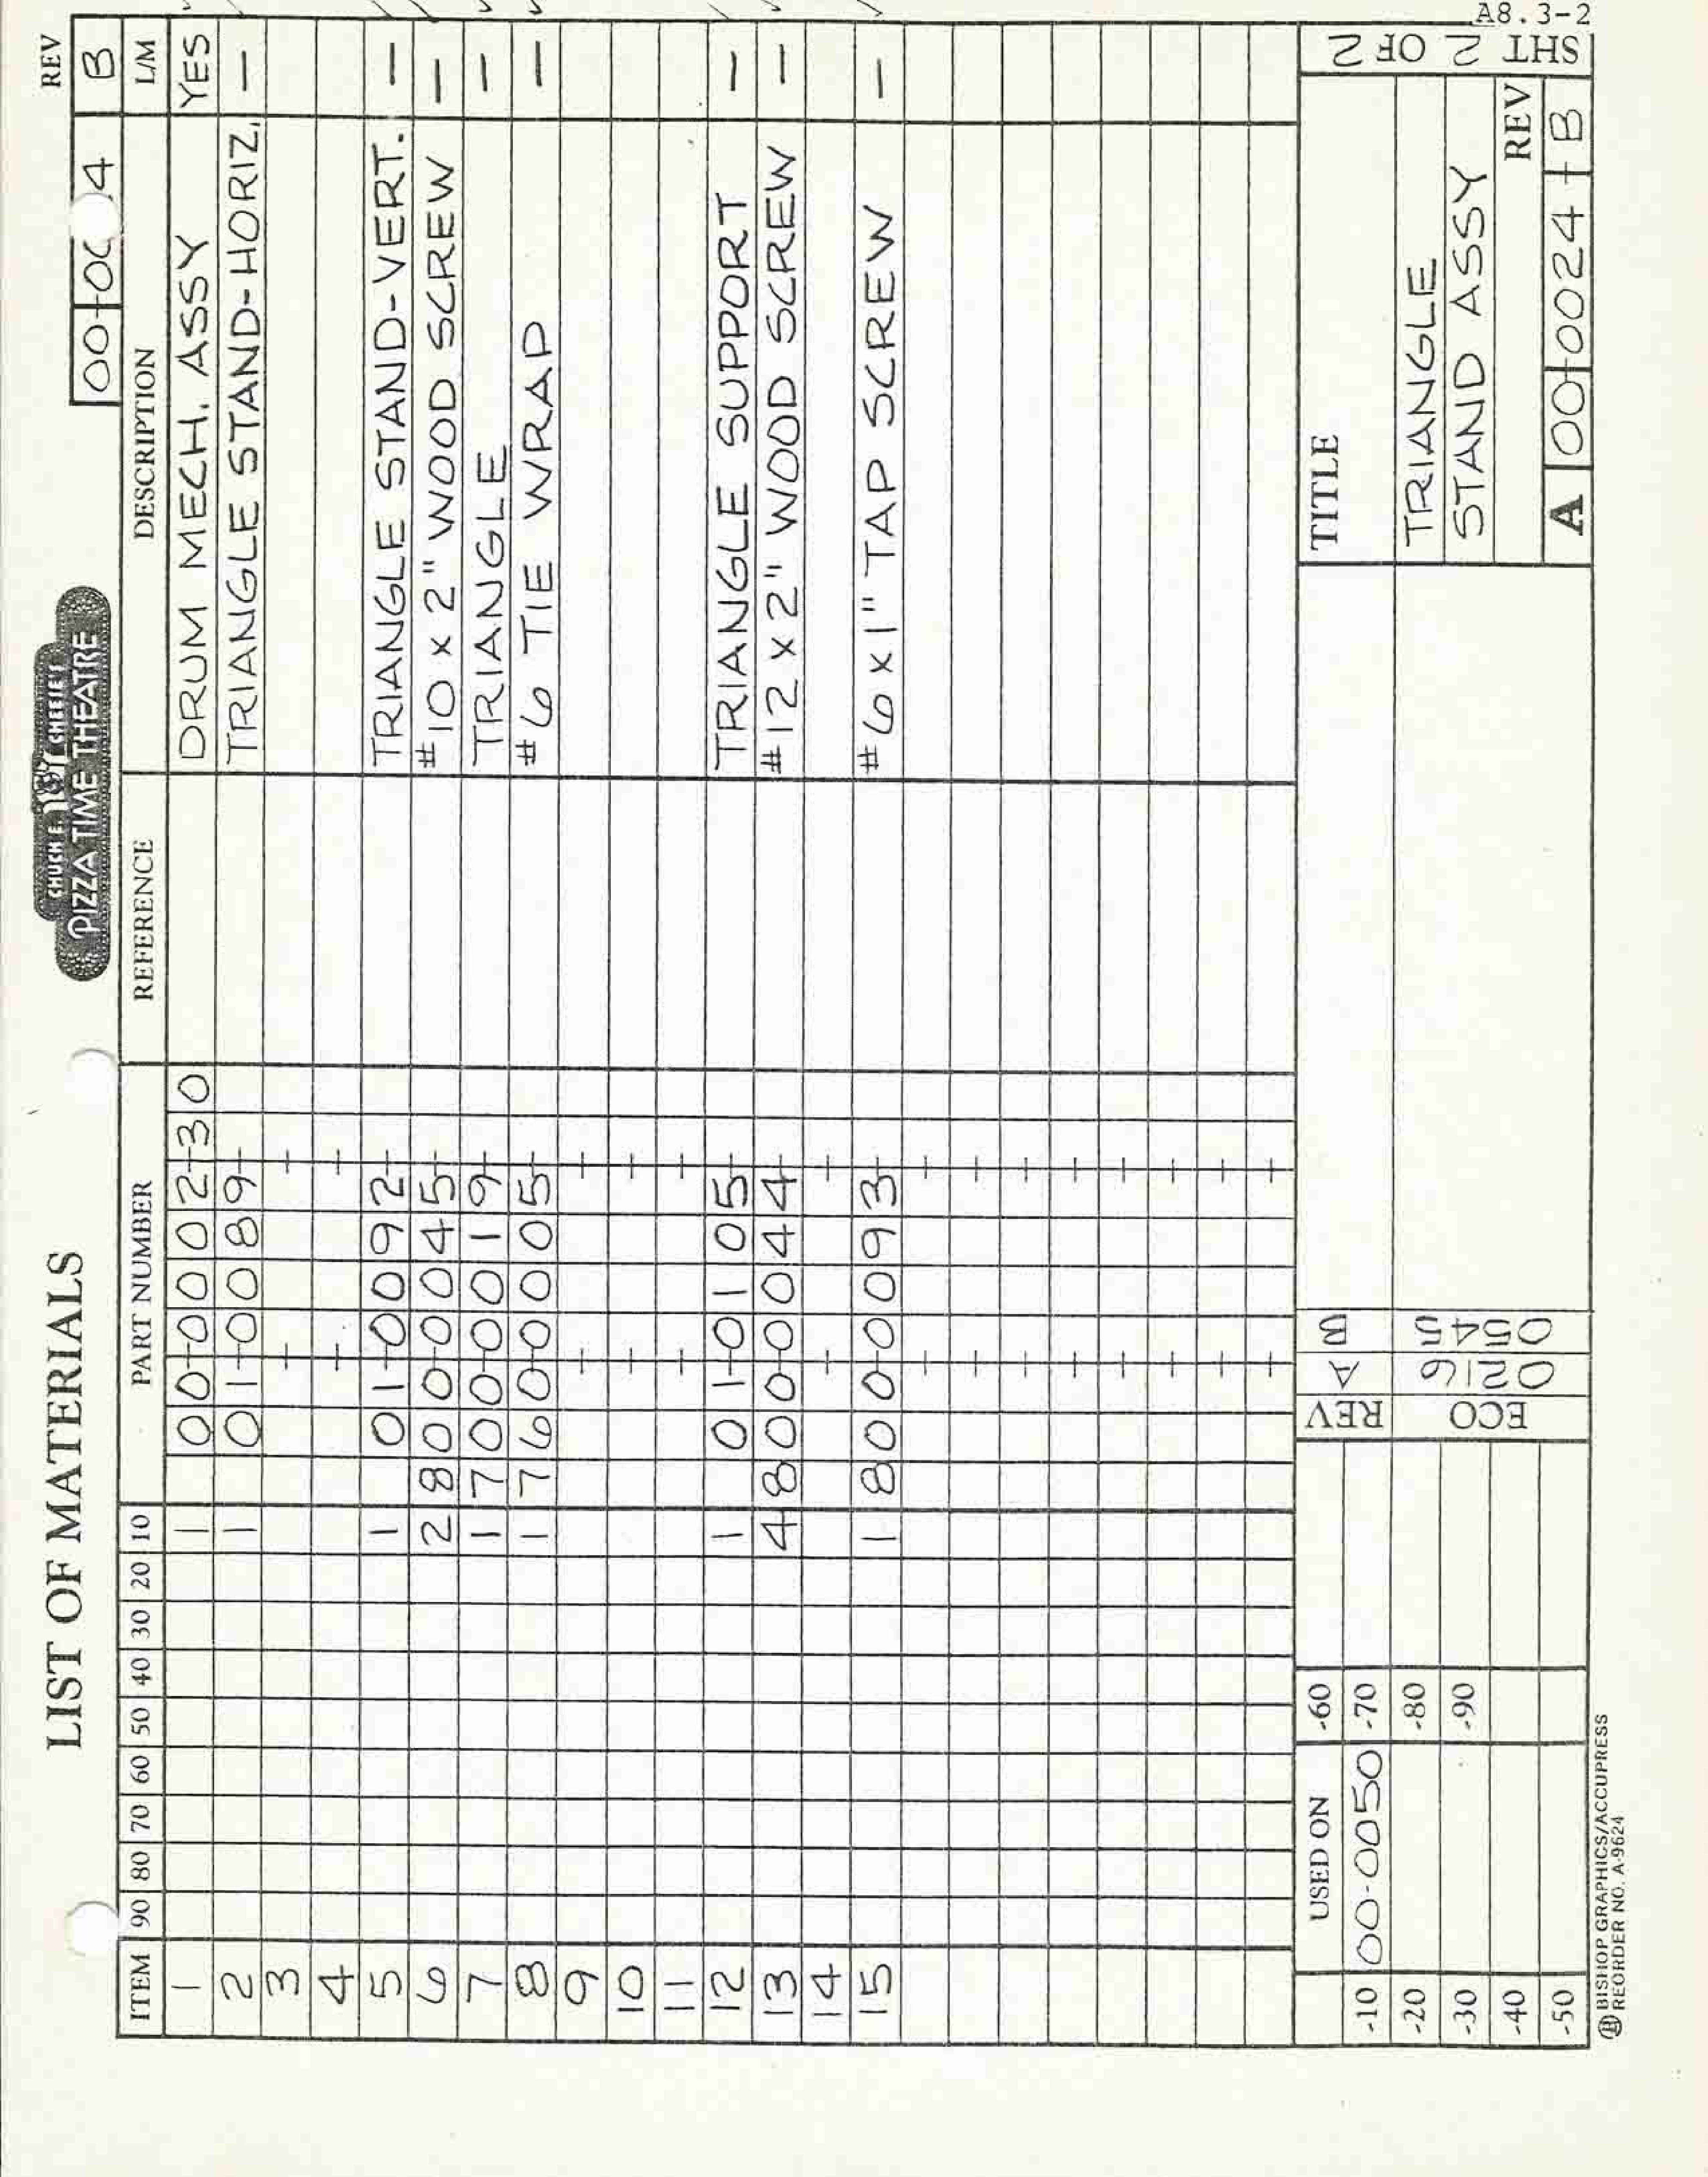 A8.3-2
LIST OF MATERIALS
CHUCK E. CHEESE'S
PIZZA TIME THEATRE
REV
00-00 4 B
ITEM 90 80 70 60 50 40 30 20 10 PART NUMBER REFERENCE DESCRIPTION L/M
1 1 00-0002-30 DRUM MECH. ASSY YES
2 1 01-0089- TRIANGLE STAND-HORIZ. —
3
4
5 1 01-0092- TRIANGLE STAND-VERT. —
6 2 800-0045- #10 x 2" WOOD SCREW —
7 1 700-0019- TRIANGLE —
8 1 760-0005- #6 TIE WRAP —
9
10
11
12 1 01-0105- TRIANGLE SUPPORT —
13 4 800-0044- #12 x 2" WOOD SCREW —
14
15 1 800-0093- #6 x 1" TAP SCREW —
USED ON
-10 00-0050 -60
-20 -70
-30 -80
-40 -90
-50
REV A B
ECO 0216 0545
TITLE
TRIANGLE
STAND ASSY
REV
A 00-0024-B
SHT 2 OF 2
BISHOP GRAPHICS/ACCUPRESS
REORDER NO. A-9624